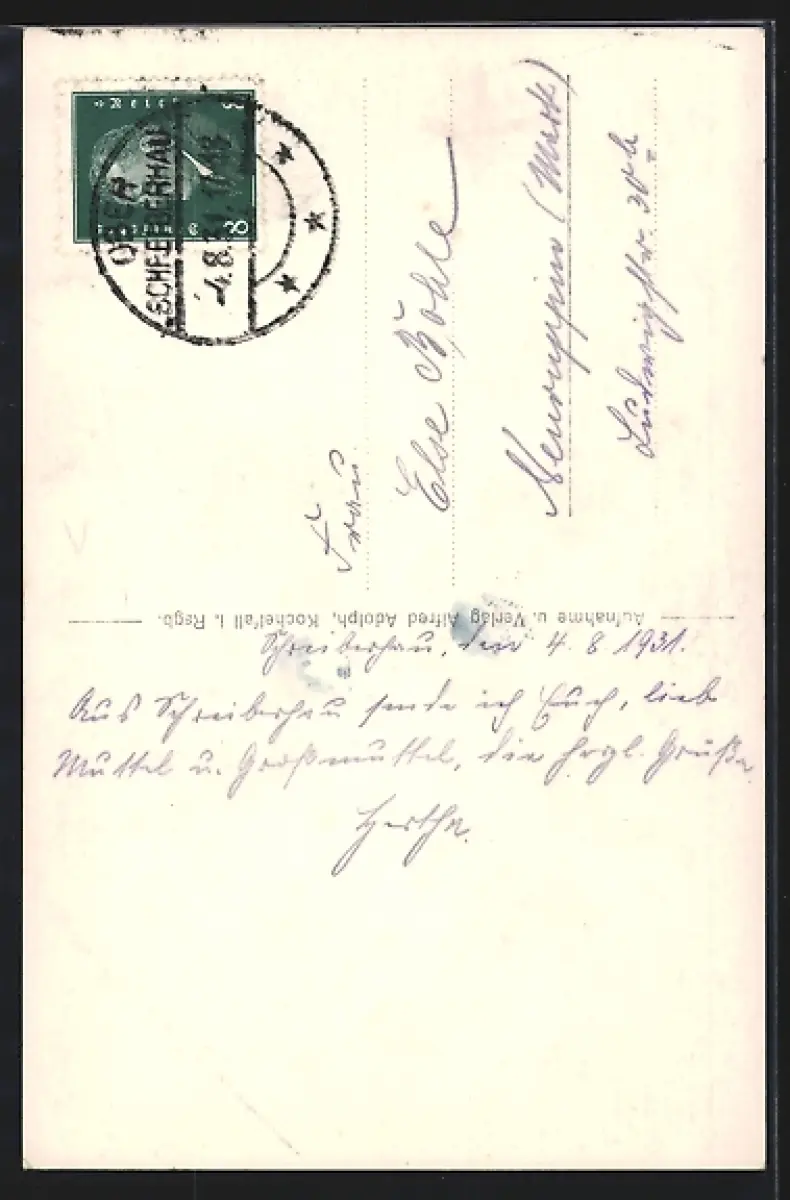 OBER
SCHREIBERHAU
4.8.31.17-18
8
Frau
Else Böhle
Neuruppin (Mark)
Ludwigstr. 30
Aufnahme u. Verlag Alfred Adolph, Kochelfall i. Rsgb.
Schreiberhau, den 4. 8 1931.
Aus Schreiberhau sende ich Euch, liebe
Muttel u. Großmuttel, die hrzl. Grüße
Hertha.